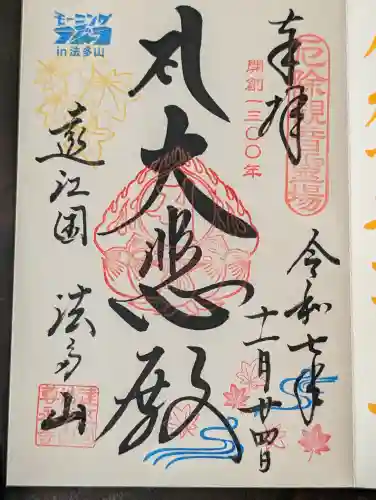 奉拝
厄除観音霊場
開創一三〇〇年
令和七年
十一月廿四日
大悲殿
モーニング
in 法多山
遠江国
法多山